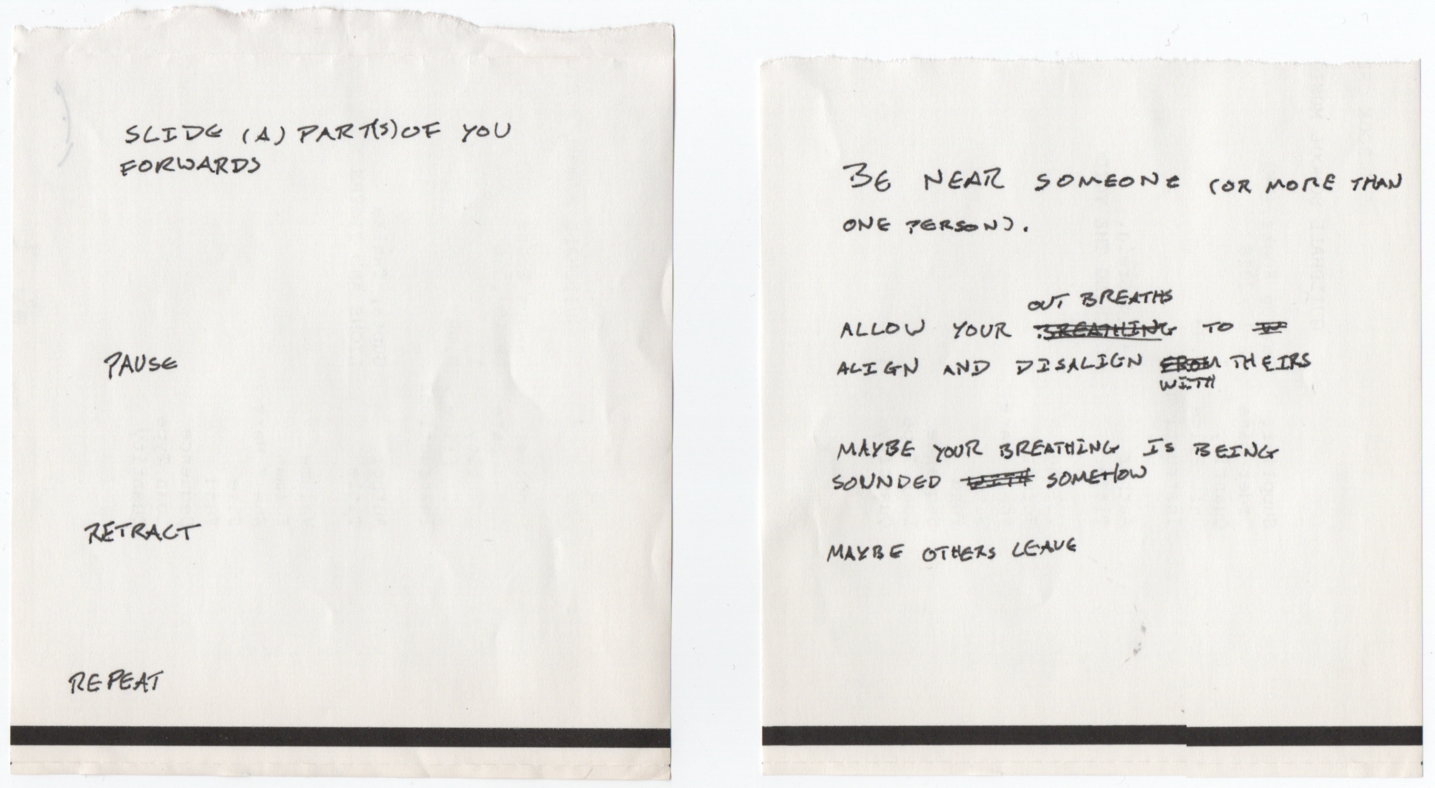 SLIDE (A) PART(S) OF YOU
FORWARDS
PAUSE
RETRACT
REPEAT
BE NEAR SOMEONE (OR MORE THAN
ONE PERSON).
OUT BREATHS
ALLOW YOUR BREATHING TO
ALIGN AND DISALIGN FROM THEIRS
WITH
MAYBE YOUR BREATHING IS BEING
SOUNDED WITH SOMEHOW
MAYBE OTHERS LEAVE